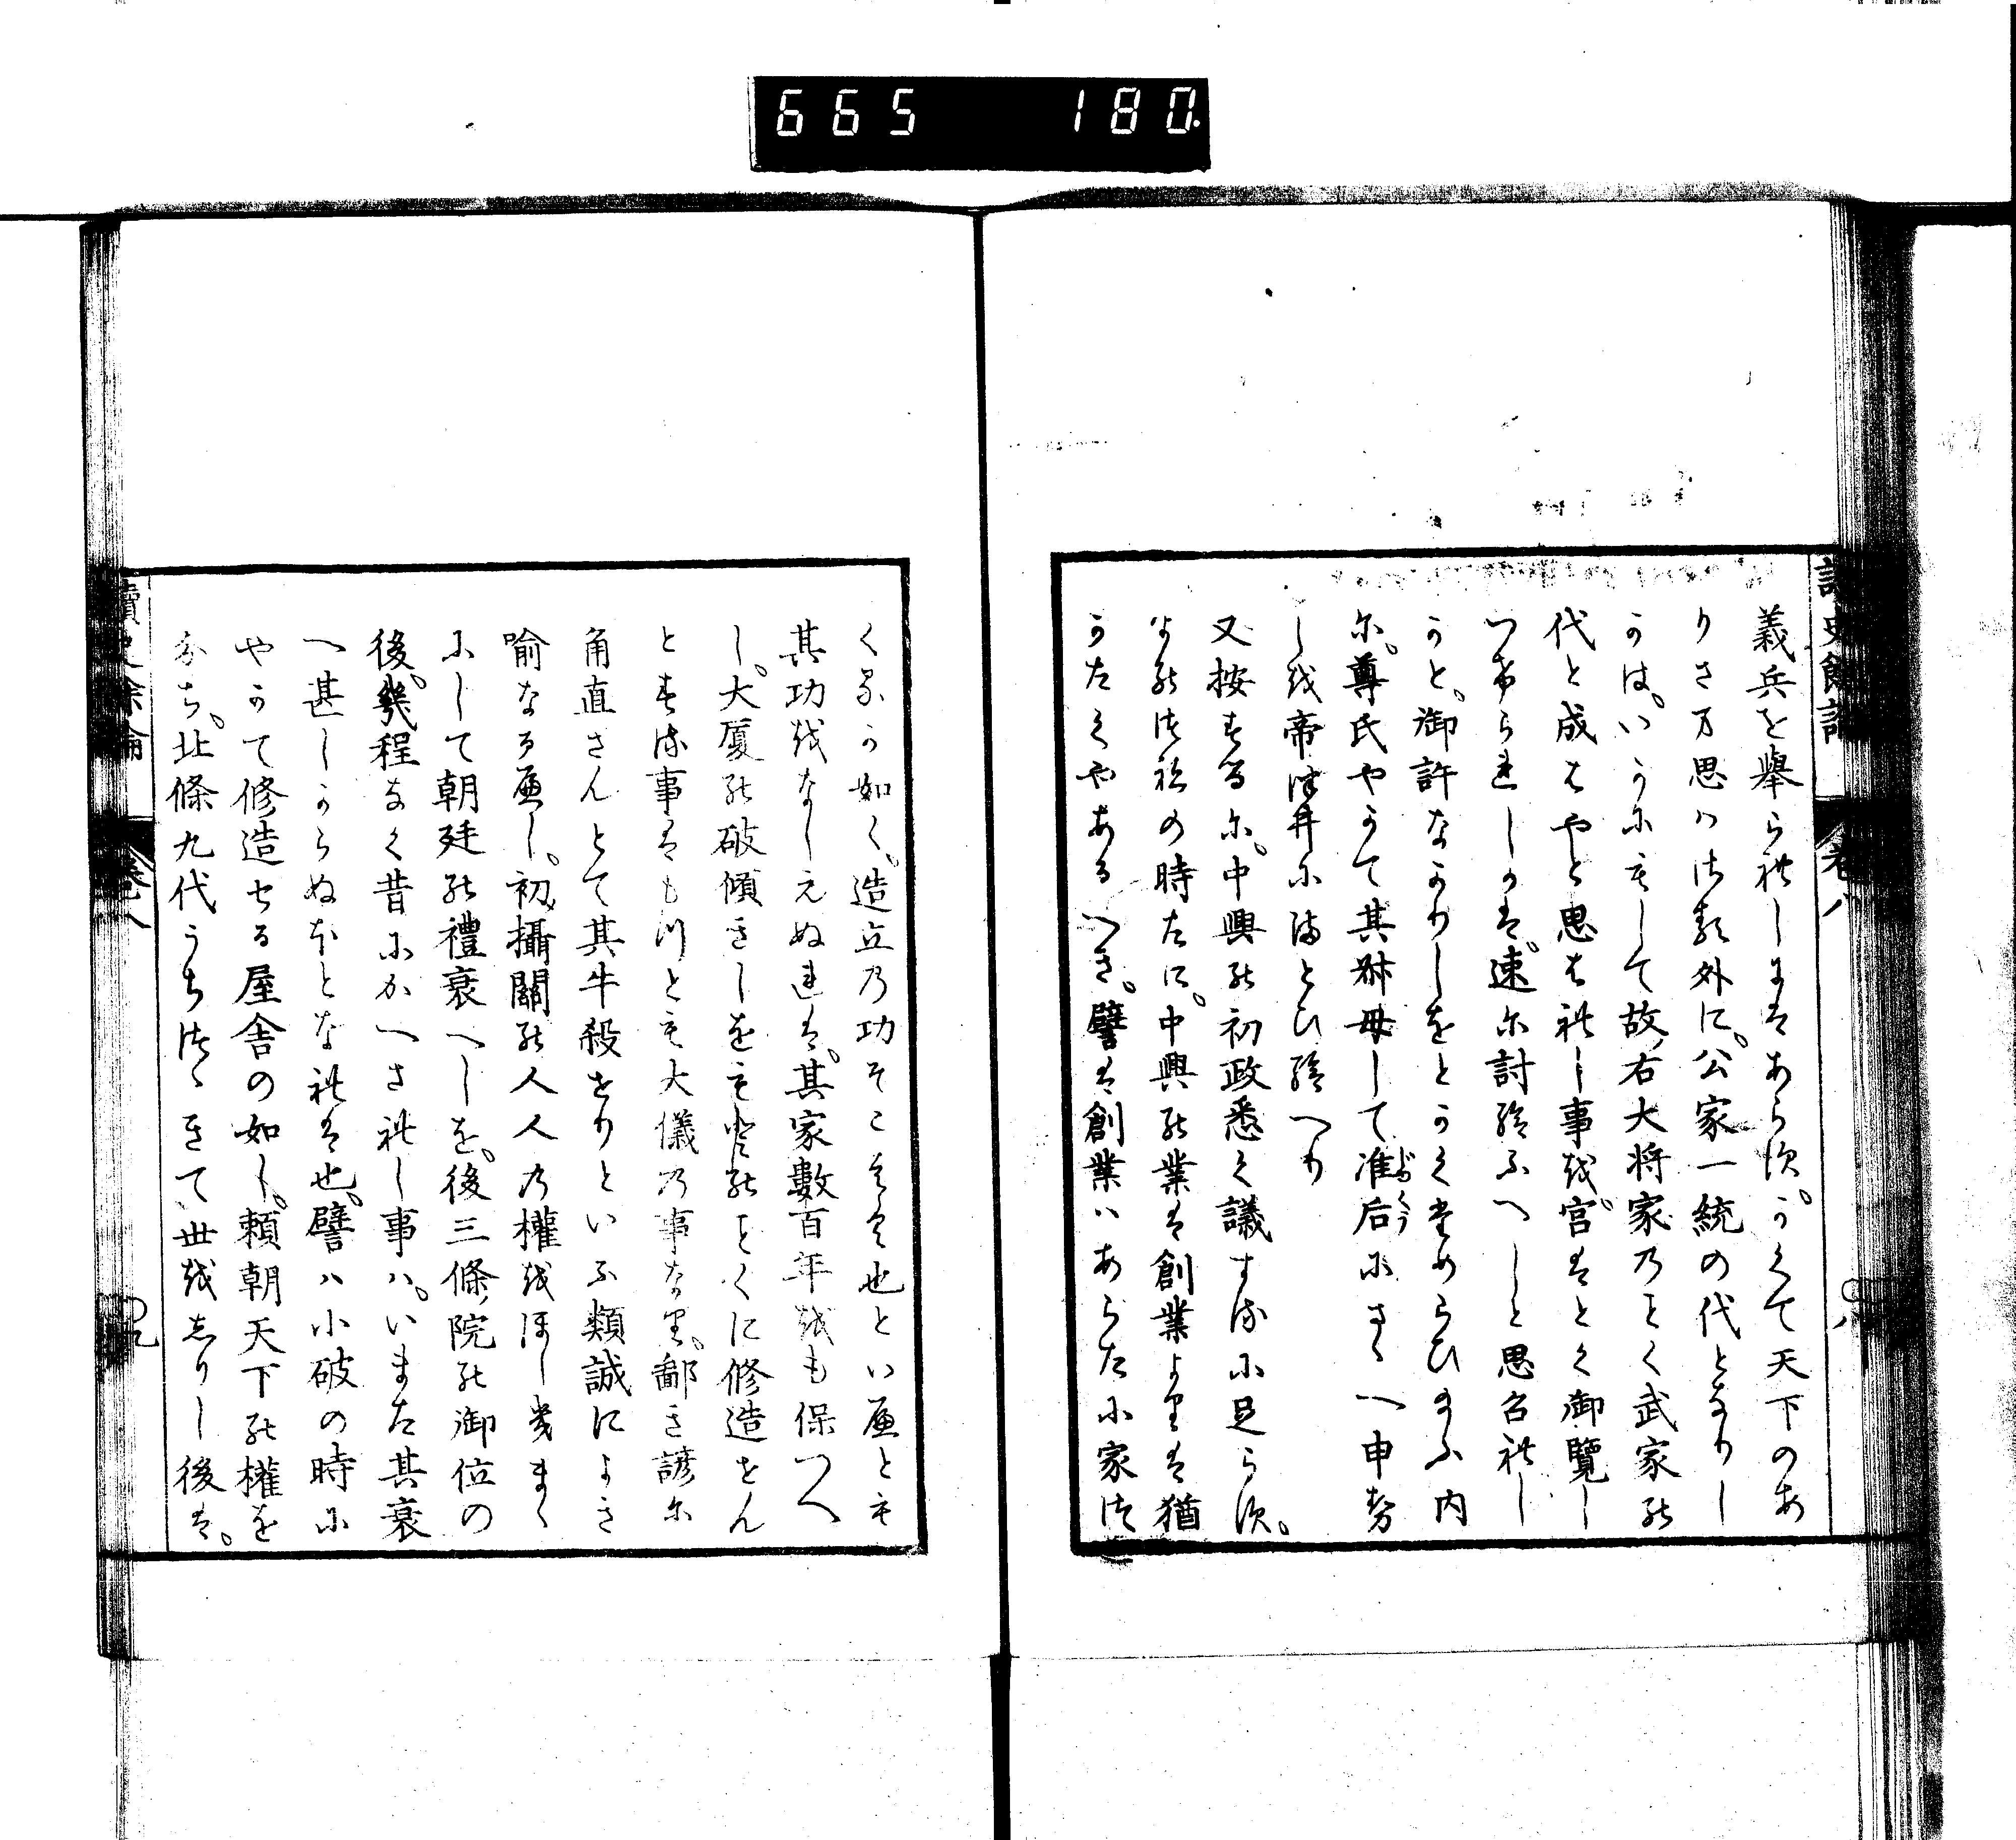 665 180
讀史餘論 卷八
義兵を擧られしにはあらす。かくて天下のあ
りさま思ハ汰外に。公家一統の代となりし
かは。いかにもして故右大将家のことく武家の
代と成はやと思はれし事を。宮はとく御覽し
つけられしかは。速に討給ふへしと思召れし
かと。御許なかりしをとかくためらひ給ふ内
に。尊氏やかて其継母して准后にさゝへ申勢
しを帝浮井に満とひ給へり
又按するに。中興の初政悉く議するに足らす。
よのつねの時たに。中興の業は創業よりは猶
かたくやあるへき。譬は創業ハあらたに家つ
くるか如く。造立の功そこそは也といへとも
其功をなしえぬれは。其家數百年をも保つへ
し。大厦の破傾きしをもとのことくに修造せん
とする事はもつとも大儀の事なり。鄙き諺に
角直さんとて其牛殺せりといふ類誠によき
喩なるへし。初攝關の人人の權をほしまゝ
にして朝廷の禮衰へしを。後三條院の御位の
後。幾程なく昔にかへされし事ハ。いまた其衰
へ甚しからぬほとなれは也。譬ハ小破の時に
やかて修造せる屋舎の如し。頼朝天下の權を
分ち。北條九代うちつゝきて世をしりし後は。
讀史餘論 卷八